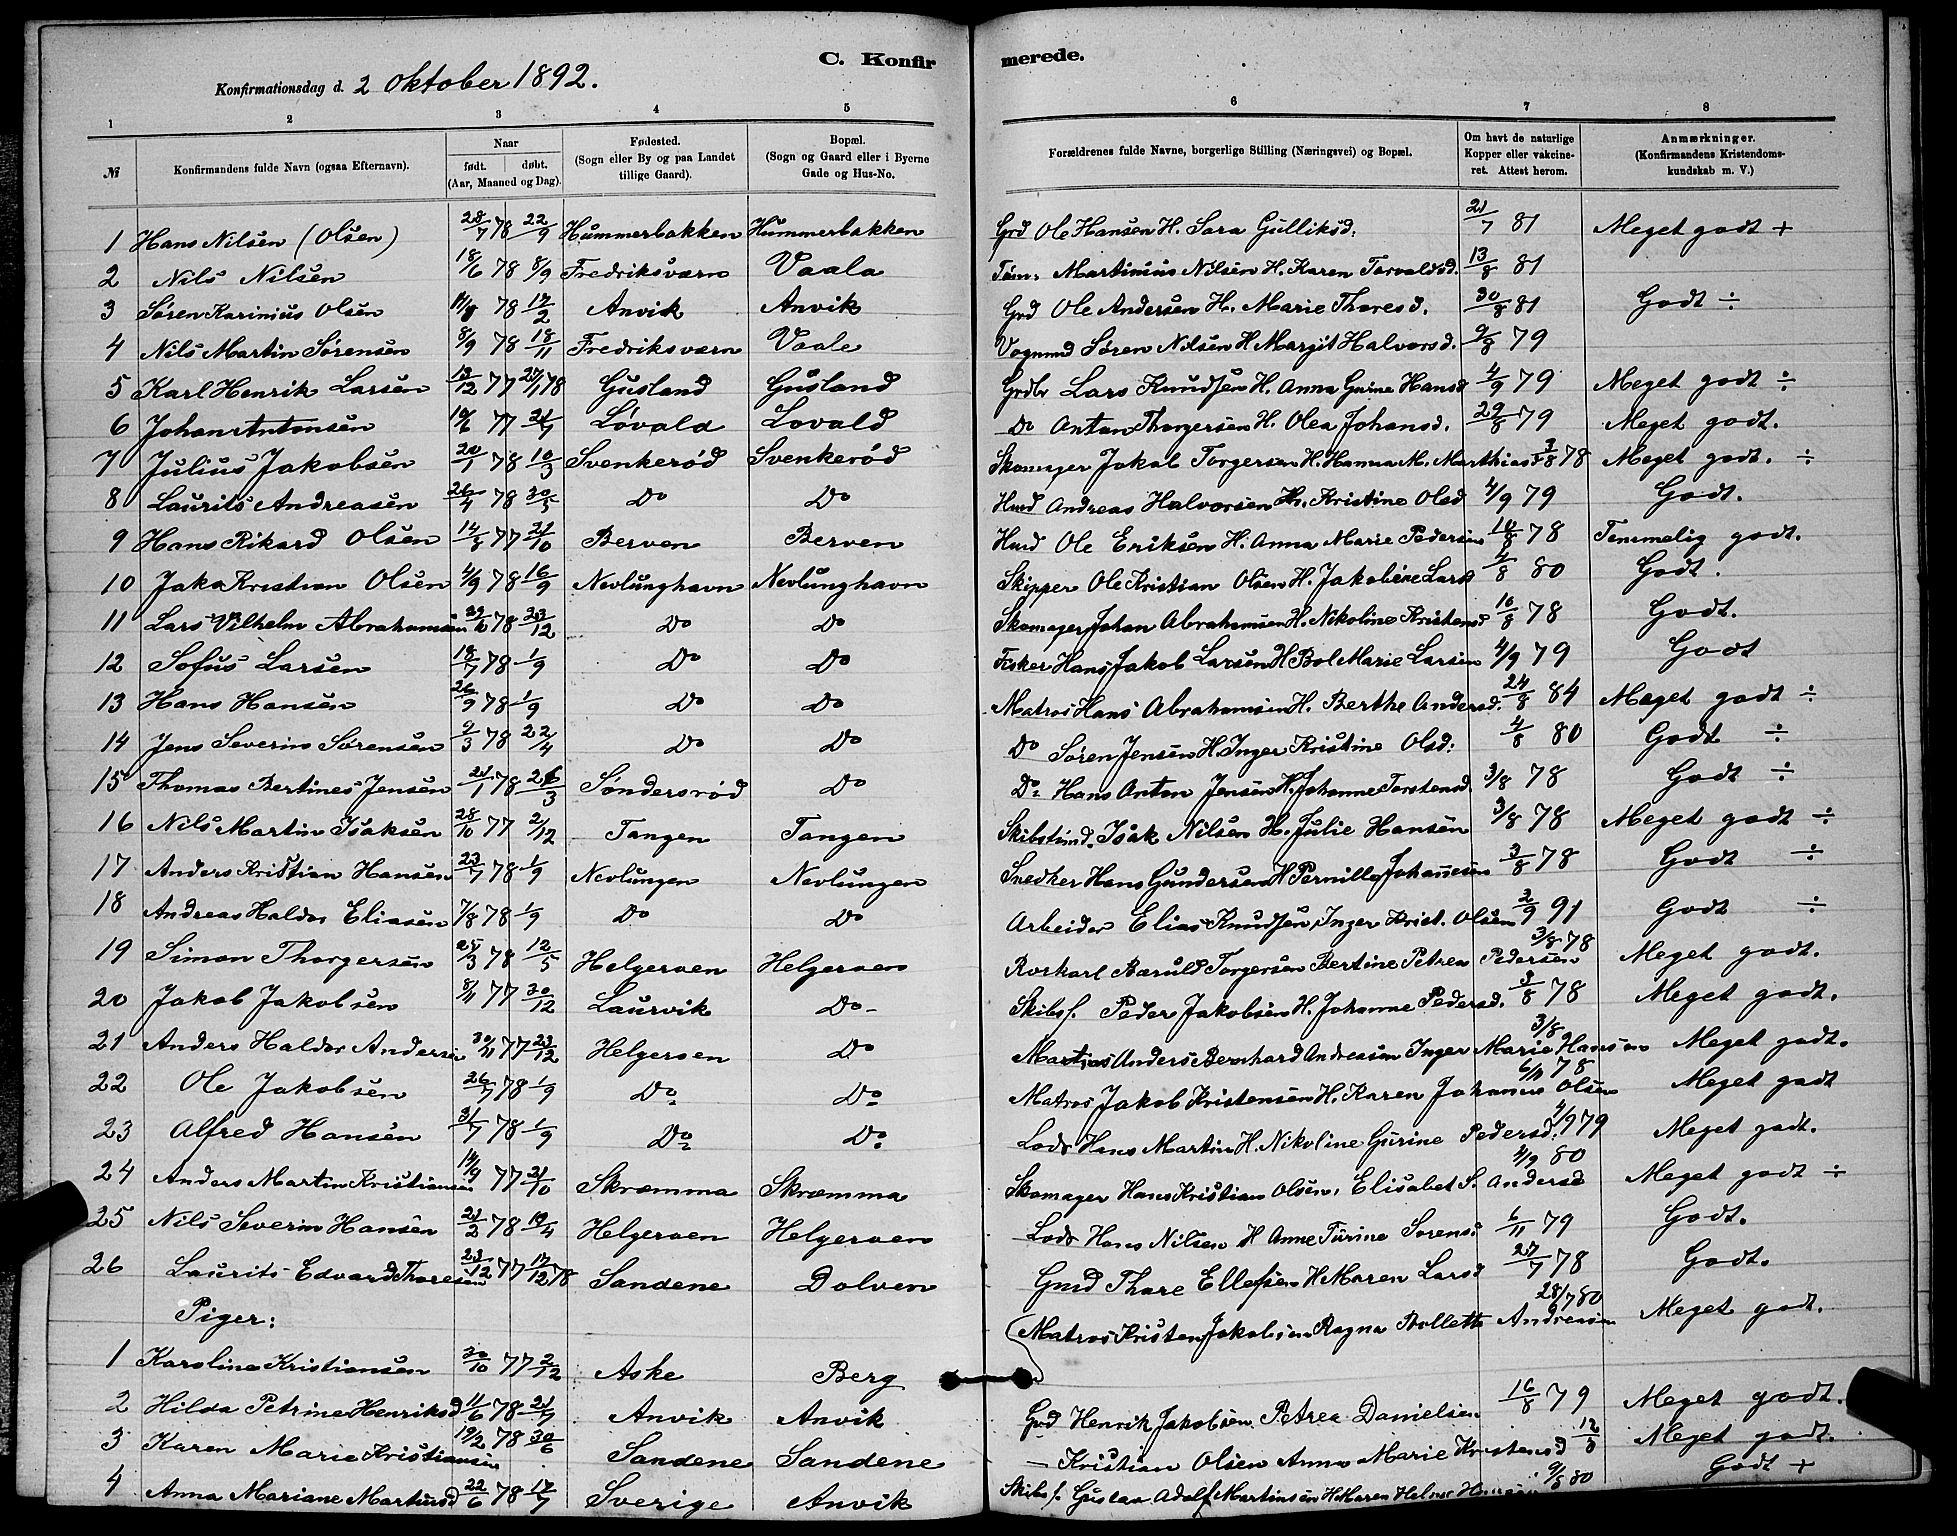 C. Konfirmerede.
Konfirmationsdag d. 2 Oktober 1892.
1 2 3 4 5 6 7 8
№ Konfirmandens fulde Navn (ogsaa Efternavn). Naar født. døbt. (Aar, Maaned og Dag). Fødested. (Sogn eller By og paa Landet tillige Gaard). Bopæl. (Sogn og Gaard eller i Byerne Gade og Hus-No. Forældrenes fulde Navne, borgerlige Stilling (Næringsvei) og Bopæl. Om havt de naturlige Kopper eller vakcineret. Attest herom. Anmærkninger. (Konfirmandens Kristendomskundskab m. V.)
1 Hans Nilsen (Olsen) 28/7 78 22/9 Hummerbakken Hummerbakken Grd Ole Hansen H. Sara Gulliksd: 21/7 81 Meget godt +
2 Nils Nilsen 18/6 78 8/9 Fredriksværn Vaala Tøm: Martinius Nilsen H. Karen Torvaldsd. 13/8 81
3 Søren Karinius Olsen 78 17/2 Anvik Anvik Grd Ole Andersen H. Marie Thoresd. 30/8 81 Godt ÷
4 Nils Martin Sørensen 8/9 78 18/11 Fredriksværn Vaale Vognmd Søren Nilsen H Margit Halvorsd. 9/8 79
5 Karl Henrik Larsen 13/12 77 27/1 78 Gusland Gusland Grdbr Lars Knudsen H. Anna Gurine Hansd 4/9 79 Meget godt ÷
6 Johan Antonsen 10/6 77 21/7 Løvald Lovald Do Anton Thorgersen H. Olea Johansd. 29/8 79 Meget godt.
7 Julius Jakobsen 20/1 78 10/3 Svenkerød Svenkerød Skomager Jakob Torgersen H. Hanna M. Marthias 3/8 78 Meget godt. ÷
8 Laurits Andreasen 26/4 78 30/5 Do Do Husd Andreas Halvorsen H. Kristine Olsd 4/9 79 Godt.
9 Hans Rikard Olsen 14/8 77 21/10 Berven Berven Husd Ole Eriksen H. Anna Marie Pedersen 10/8 78 Temmelig godt.
10 Jakob Kristian Olsen 4/9 78 16/9 Nevlunghavn Nevlunghavn Skipper Ole Kristian Olsen H. Jakobine Larsd 4/8 80 Godt.
11 Lars Vilhelm Abrahamsen 78 23/12 Do Do Skomager Johan Abrahamsen H. Nikoline Kristensd 10/8 78 Godt.
12 Sofus Larsen 18/7 78 1/9 Do Do Fisker Hans Jakob Larsen H Bol Marie Larsen 4/9 79 Godt
13 Hans Hansen 26/7 78 1/9 Do Do Matros Hans Abrahamsen H. Berthe Andersd. 24/8 84 Meget godt ÷
14 Jens Severin Sørensen 9/3 78 22/4 Do Do Do Søren Jensen H. Inger Kristine Olsd: 4/8 80 Godt ÷
15 Thomas Bertines Jensen 21/1 78 26/3 Søndersrød Do Do Hans Anton Jensen H. Johanne Torstensd. 3/8 78 Godt ÷
16 Nils Martin Isaksen 28/10 77 2/12 Tangen Tangen Skibstimd. Isak Nilsen H. Julie Hansen 3/8 78 Meget godt ÷
17 Anders Kristian Hansen 23/7 78 1/9 Nevlungen Nevlungen Snedker Hans Gundersen H Pernille Johannesen 3/8 78 Godt ÷
18 Andreas Haldor Eliasen 7/8 78 1/9 Do Do Arbeider Elias Knudsen, Inger Krist. Olsen 2/9 91 Godt ÷
19 Simon Thorgersen 25/3 78 12/5 Helgeroen Helgeroen Rorkarl Baruld Torgersen Bertine Petrea Pedersen 3/8 78 Meget godt.
20 Jakob Jakobsen 8/11 77 30/12 Laurvik Do - Skibsf. Peder Jakobsen H. Johanne Pedersd. 3/8 78 Meget godt.
21 Anders Haldor Andersen 30/11 77 23/12 Helgeroen Do Anders Bernhard Andreasen Inger Marie Hansen 3/8 78 Meget godt.
22 Ole Jakobsen 26/7 78 1/9 Do Do Matros Jakob Kristensen H. Karen Johanne Olsen 6/11 78 Meget godt
23 Alfred Hansen 31/7 78 1/9 Do Do Lods Hans Martin H. Nikoline Gurine Pedersd. 4/9 79 Meget godt.
24 Anders Martin Kristiansen 14/9 77 21/10 Skræmma Skræmma Skomager Hans Kristian Olsen, Elisabet S. Andersd 4/9 80 Meget godt ÷
25 Nils Severin Hansen 21/2 78 19/4 Helgeroen Helgeroen Lods Hans Nilsen H Anne Turine Sorens. 6/11 79 Godt.
26 Laurits Edvard Thoresen 23/12 77 17/12 78 Sandene Dolven Gmd Thore Ellefsen H Maren Larsd 27/7 78 Godt.
Piger:
1 Karoline Kristiansen 30/10 77 2/12 Aske Berg Matros Kristen Jakobsen Ragna Bollette Andreasen 28/7 80 Meget godt.
2 Hilda Petrine Henriksd 11/6 78 21/7 Anvik Anvik Grd Henrik Jakobsen Petrea Danielsen 16/8 79 Meget godt.
3 Karen Marie Kristiansen 19/2 78 30/6 Sandene Sandene - Kristian Olsen Anna Marie Kristensd 12/8 Meget godt.
4 Anna Mariane Martinsd 22/6 78 17/7 Sverige Anvik Skibsf. Gustav Adolf Martinsen H. Maren Helene 9/8 80 Godt +